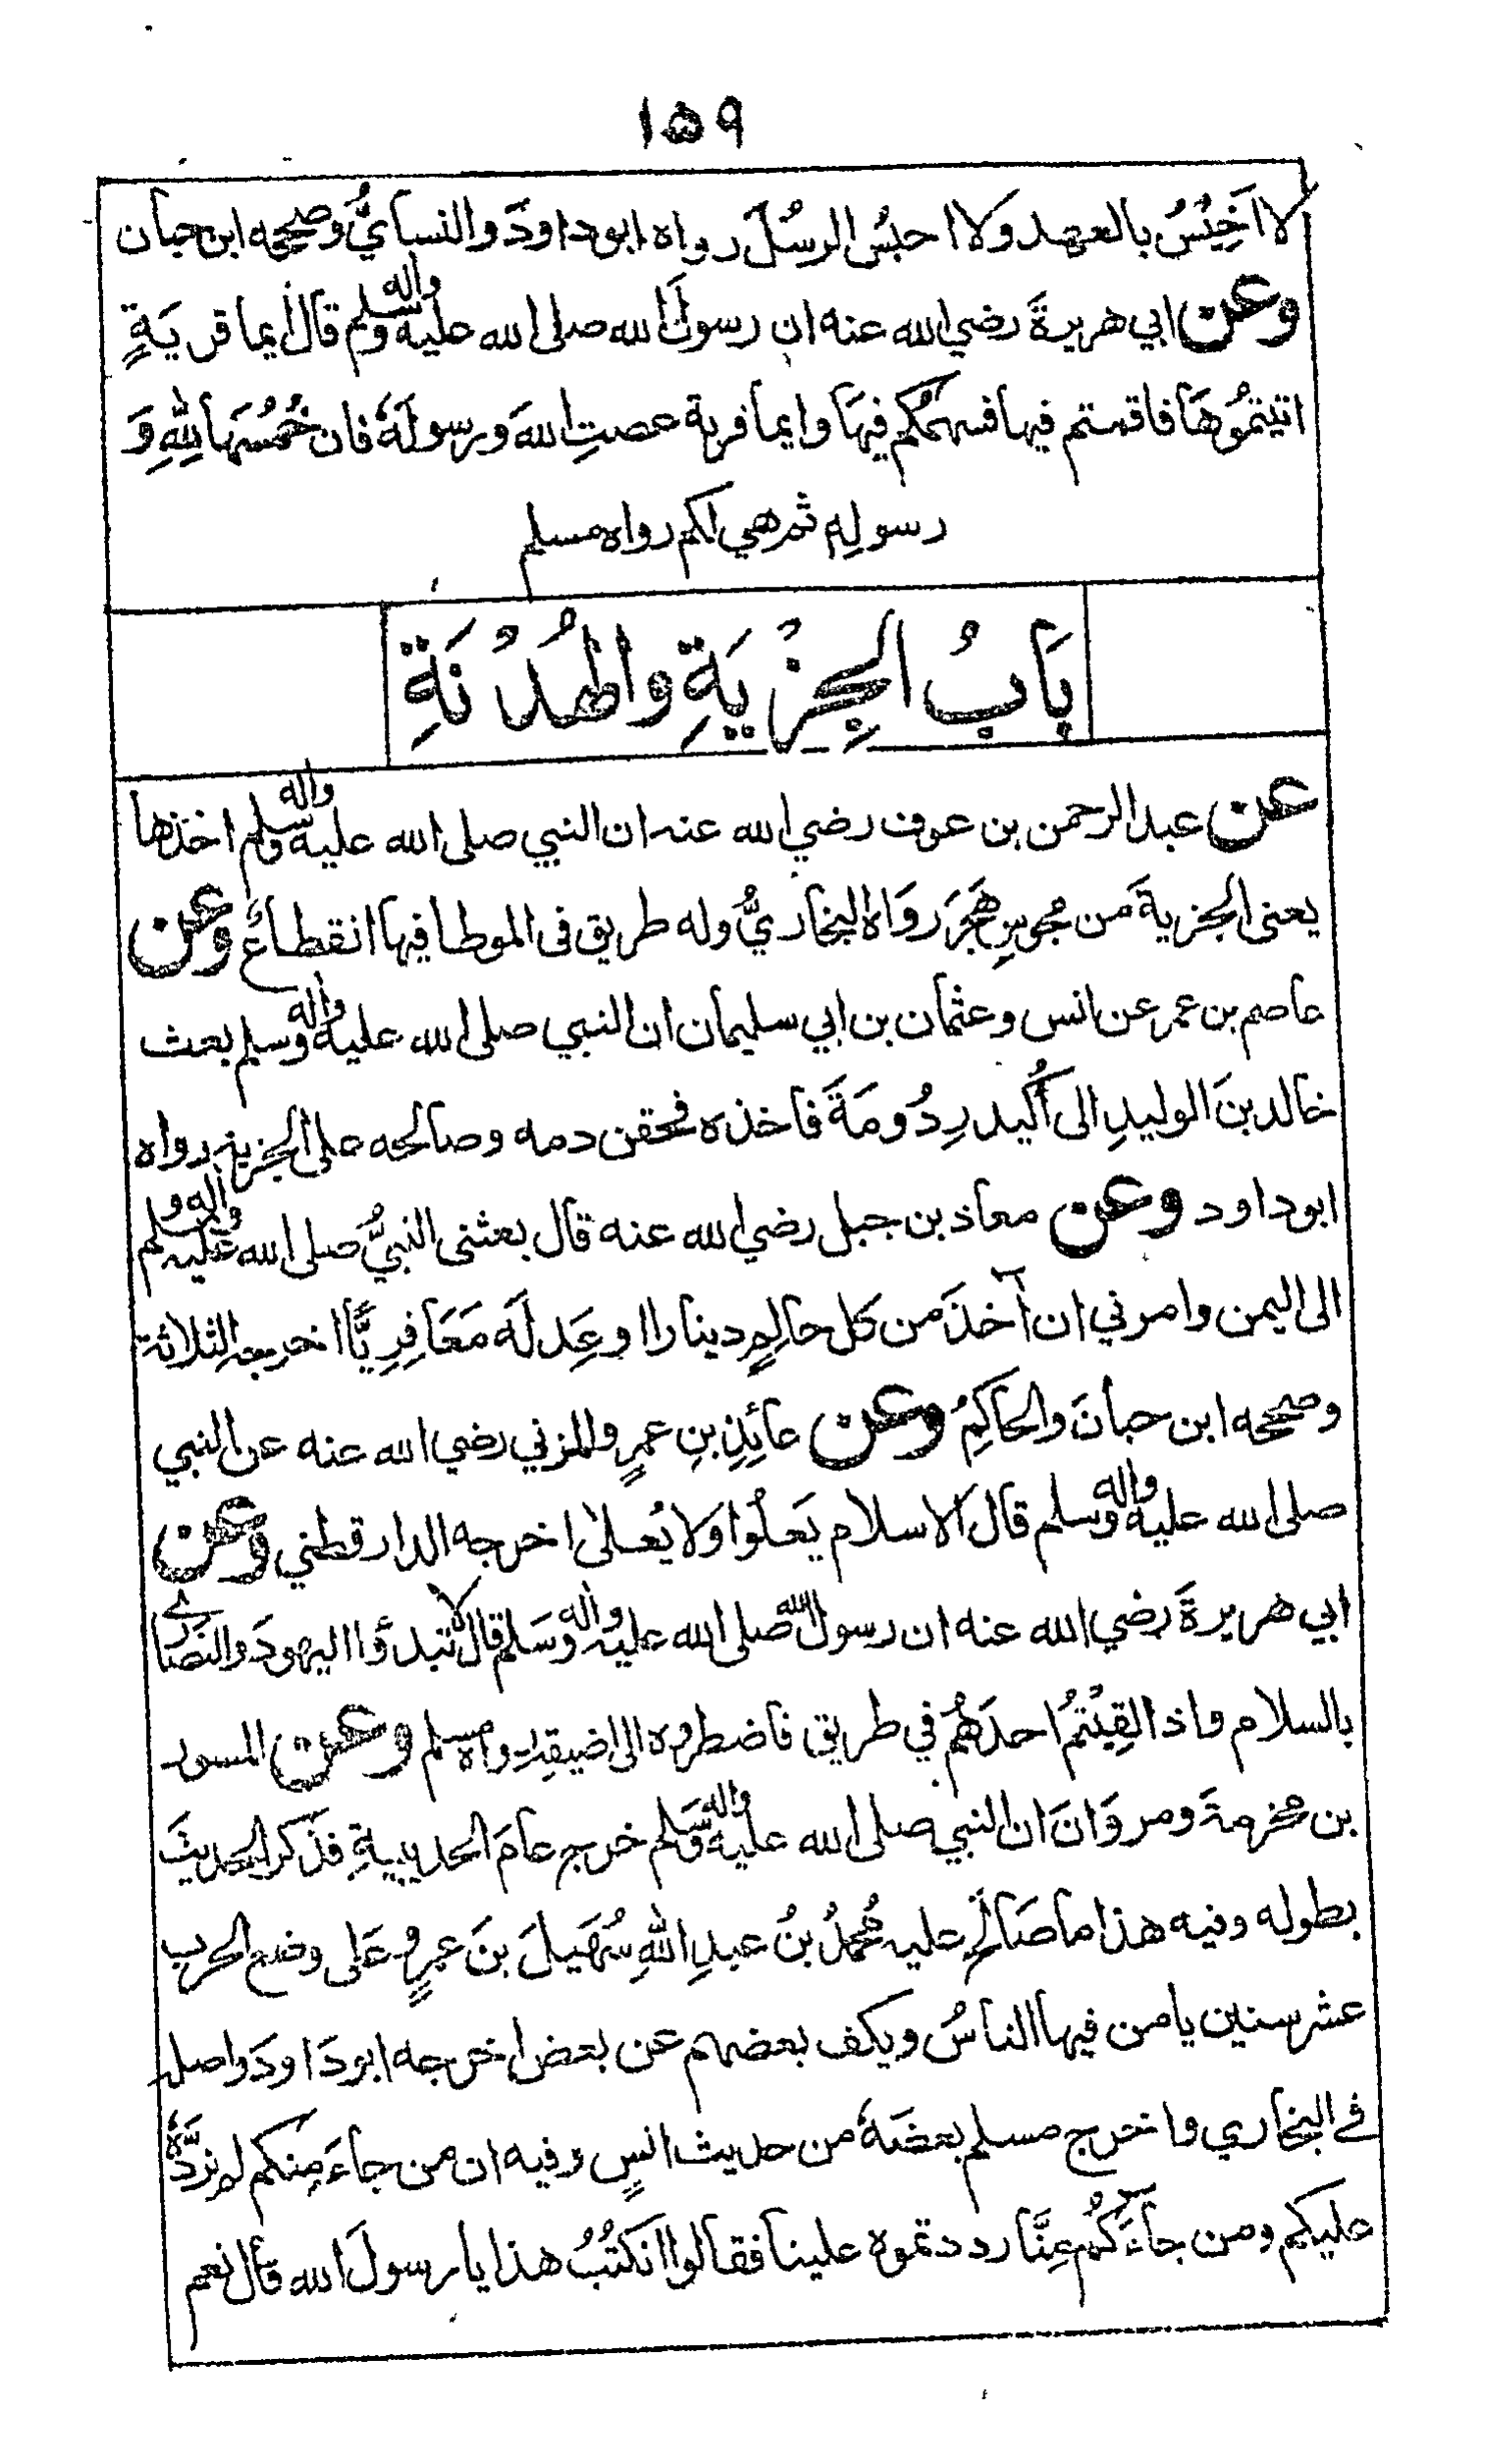 ١٥٩
لا اَخِيْسُ بالعهد ولا احبُس الرسُلَ رواه ابوداودَ والنسايُّ وصححه ابن حبان
وعن ابي هريرةَ رضي الله عنه ان رسولَ الله صلى الله عليه واله وسلم قال ايما قريَةٍ
اتيتمُوهَا فاقمتم فيها فسهمُكم فيهَا وايما قرية عصتِ اللهَ ورسولَهُ فان خُمُسَهَا لِلّٰهِ وَ
رسولِهِ ثم هي لكم رواه مسلم
بَابُ الجِزْيَةِ والهُدْنَةِ
عن عبد الرحمن بن عوف رضي الله عنه ان النبي صلى الله عليه واله وسلم اخذها
يعنى الجزيةَ من مجوسِ هَجَرَ روَاه البخاريُّ وله طريق فى الموطا فيها انقطاعٌ وعن
عاصم بن عمر عن انس وعثمان بن ابي سليمان ان النبي صلى الله عليه واله وسلم بعث
خالد بنَ الوليدِ الى أُكيدرِ دُومَةَ فاخذه فحقن دمه وصالحه على الجزية رواه
ابوداود وعن معاذ بن جبل رضي الله عنه قال بعثنى النبيُّ صلى الله عليه واله وسلم
الى اليمن وامرني ان آخذَ من كل حالِمٍ دينارا اوعِدلَه مَعَافِرِيًّا اخرجه الثلاثة
وصححه ابن حبانَ والحاكِمُ وعن عائِذِ بنِ عمرٍو المزني رضي الله عنه عن النبي
صلى الله عليه واله وسلم قال الاسلام يَعلُوا ولا يُعلىٰ اخرجه الدارقطني وعن
ابي هريرةَ رضي الله عنه ان رسول الله صلى الله عليه واله وسَلم قال لا تبدؤا اليهودَ والنصَارے
بالسلام واذا لقِيْتمُ احدَهُم في طريق فاضطروه الى اضيقِه رواه مسلم وعن المسور
بن مخرمةَ ومروَانَ ان النبي صلى الله عليه واله وسَلم خرج عامَ الحديبيةِ فذكر الحديثَ
بطوله وفيه هذا ما صَالَحَ عليه مُحمدُ بنُ عبدِ اللهِ سُهَيلَ بنَ عمرٍو عَلى وضع الحرب
عشر سنين يامن فيها الناسُ ويكف بعضهم عن بعض اخرجه ابودَاودَ واصله
فے البخاري واخرج مسلم بعضَهُ من حديث انسٍ وفيه ان من جاءَ مِنكم لم نردَّهُ
عليكم ومن جآءَكُم مِنَّا رددتموه علينا فقالوا انَكتُبُ هذا يا رسولَ الله قال نعم